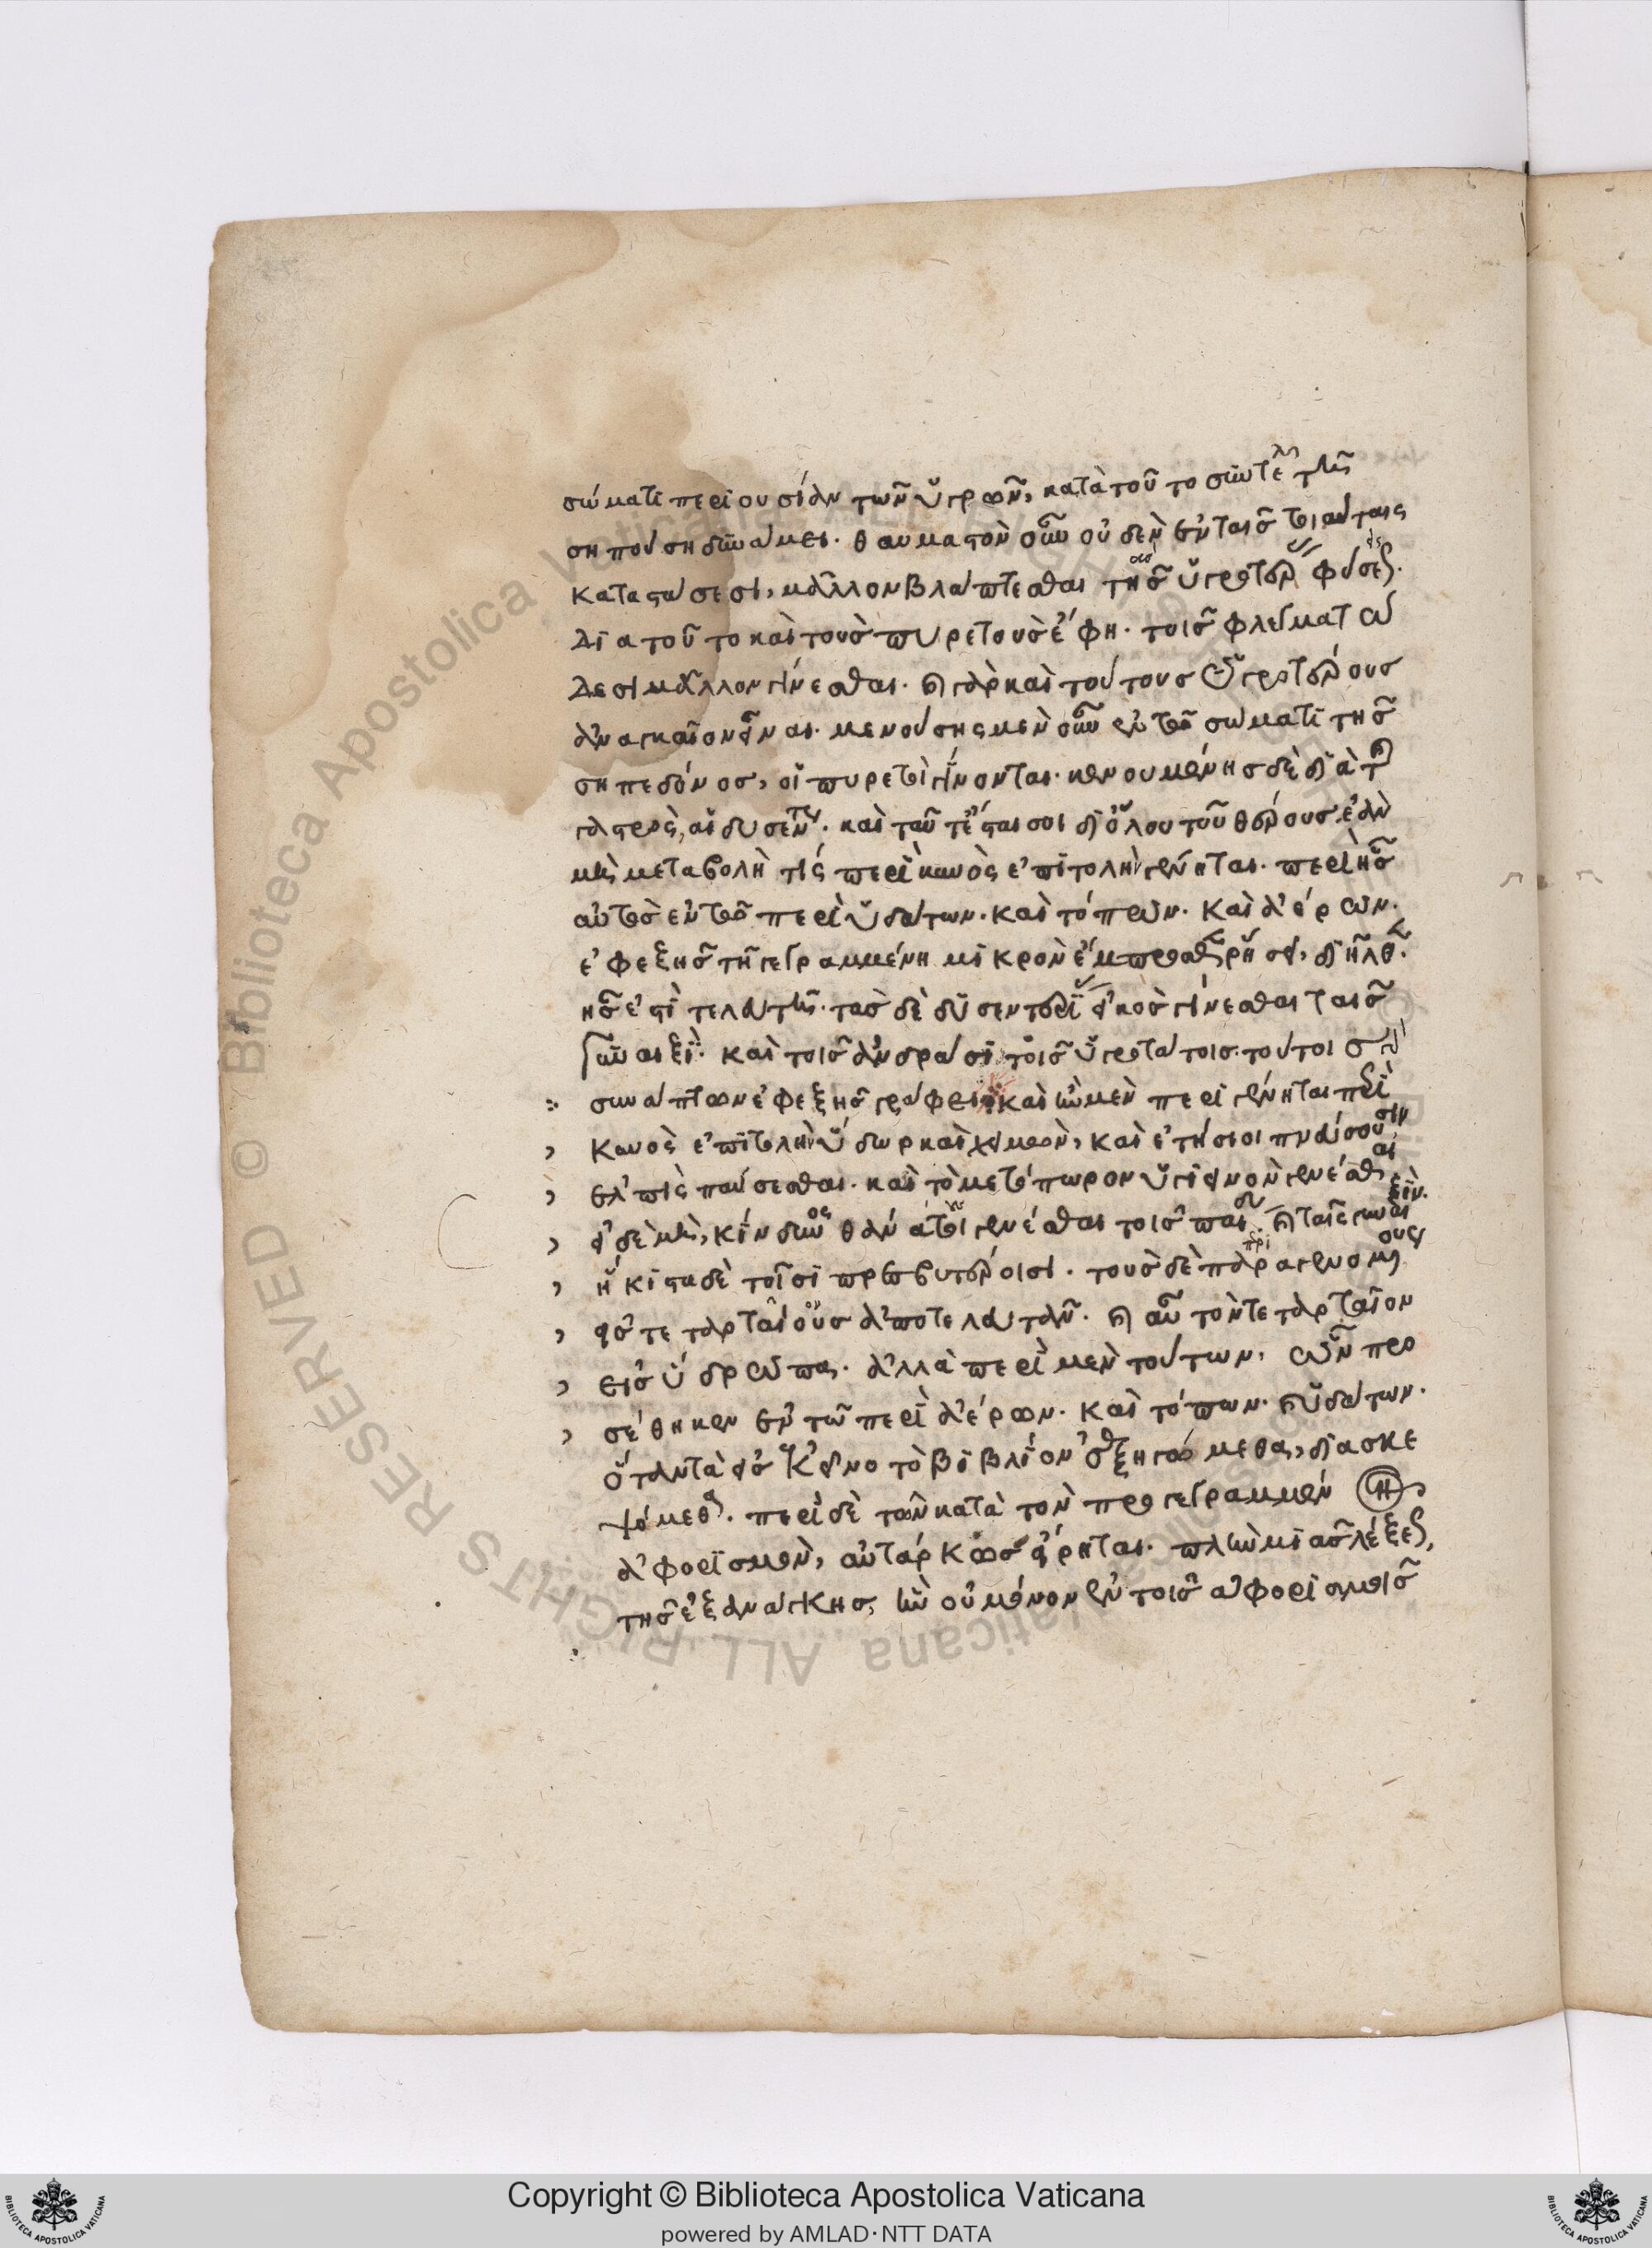 σώματι περιουσίαν τῶν ὑγρῶν, κατὰ τοῦτο συντελεῖ τῆς
σηπούσης δυνάμει. θαυμαστὸν οὖν οὐδὲν ἐν ταῖς τοιαύταις
καταστάσεσι, μᾶλλον βλάπτεσθαι τὰς ὑγροτέρας φύσεις.
διατοῦτο καὶ τοὺς πυρετοὺς ἔφη. τοῖς φλεγματώ
δεσι μᾶλλον γίνεσθαι. καὶ γὰρ καὶ τούτους ὑγροτέρους
ἀναγκαῖον εἶναι. μενούσης μὲν οὖν ἐν τῷ σώματι τῆς
σηπεδόνος, οἱ πυρετοὶ γίνονται. κενουμένης δὲ διὰ τῆς
γαστρὸς, αἱ δυσεντερίαι. καὶ ταῦτ' ἔσται σοι δι' ὅλου τοῦ θέρους ἐὰν
μὴ μεταβολή τίς περὶ κυνὸς ἐπιτολὴν γένηται. περὶ ἧς
αὐτὸς ἐν τῷ περὶ ὑδάτων. καὶ τόπων. καὶ ἀέρων.
ἐφεξῆς τῇ γεγραμμένῃ μικρὸν ἔμπροσθεν ῥήσει, διῆλθεν.
ἧς ἐστὶ τελευτὴ. τὰς δὲ δυσεντερίας εἰκὸς γίνεσθαι ταῖς
γυναιξὶ. καὶ τοῖς ἀνδράσι τοῖς ὑγροτάτοις. τούτοις
συνάπτων ἐφεξῆς γράφει· καὶ ἢν μὲν περιγένηται περὶ
κυνὸς ἐπιτολὴν ὕδωρ καὶ χειμὼν, καὶ ἐτήσιοι πνεύσουσιν
ἐλπὶς παύσεσθαι. καὶ τὸ μετόπωρον ὑγιεινὸν γενέσθαι
εἰ δὲ μὴ, κίνδυνος θανάτοι γενέσθαι τοῖς παιδίοις. καὶ ταῖς γυναιξὶν.
ἥκιστα δὲ τοῖσι πρεσβυτέροισι. τοὺς δὲ παραγενομένους
εἰς τεταρταίους ἀποτελευτᾶν. καὶ αὖ τὸν τεταρταῖον
εἰς ὕδρωπας. ἀλλὰ περὶ μὲν τούτων, ὧν προ
σέθηκεν ἐν τῷ περὶ ἀέρων. καὶ τόπων. καὶ ὑδάτων.
ὅταν τὰ εἰς ἐκεῖνο τὸ βιβλίον ἐξηγώμεθα, διασκε
ψόμεθα. περὶ δὲ τῶν κατὰ τὸν προγεγραμμένον
ἀφορισμὸν, αὐτάρκως εἴρηται. πλὴν μιᾶς λέξεως,
τῆς ἐξ ἀνάγκης, ἣν οὐ μόνον ἐν τοῖς ἀφορισμοῖς
Copyright © Biblioteca Apostolica Vaticana
powered by AMLAD·NTT DATA